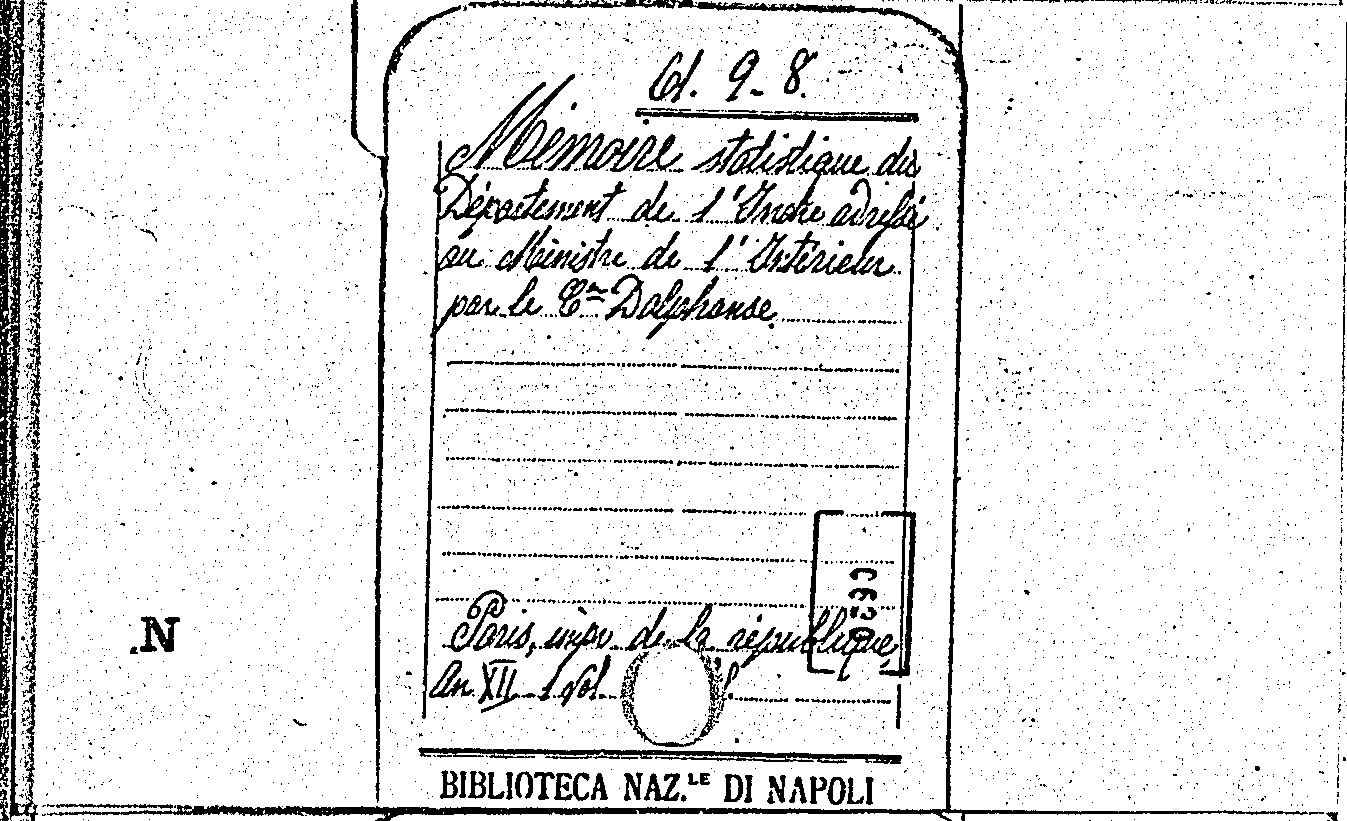 61. 9-8.
Mémoire statistique du
Département de l'Indre adressé
au Ministre de l'Intérieur
par le C.en Dalphonse.
Paris, impr. de la république,
An XII 1 vol. f.
N
BIBLIOTECA NAZ.LE DI NAPOLI